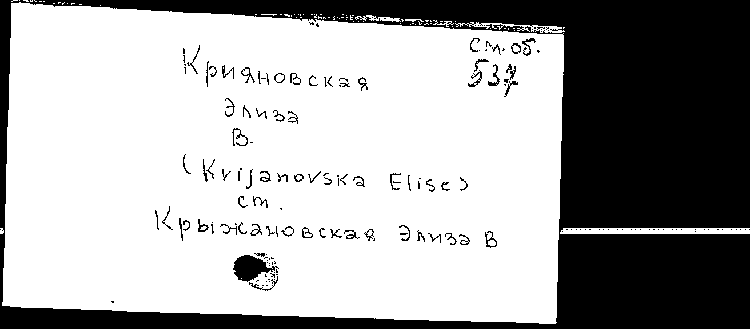 см. об.
537
Крияновская
Элиза
В.
(Krijanovska Elise)
см.
Крыжановская Элиза В